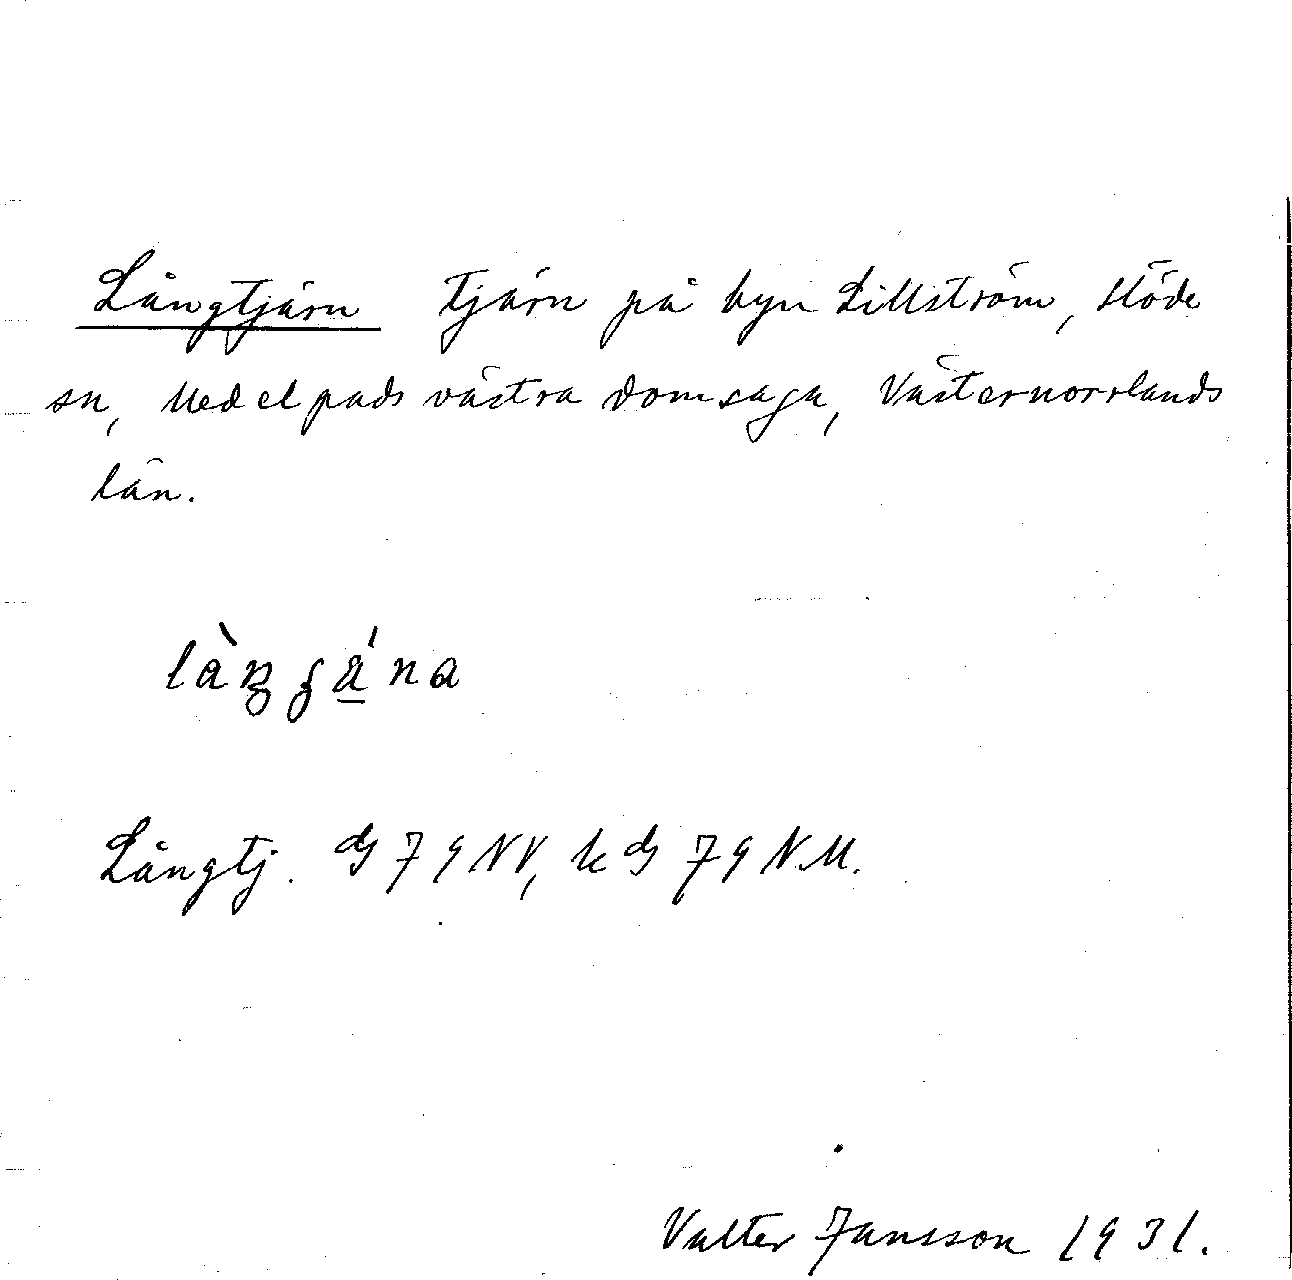 Långtjärn tjärn på byn Lillström, Stöde
sn, Medelpads västra domsaga, Västernorrlands
län.
Långtj. dg 79 NV, k dg 79 N.M.
Valter Jansson 1931.